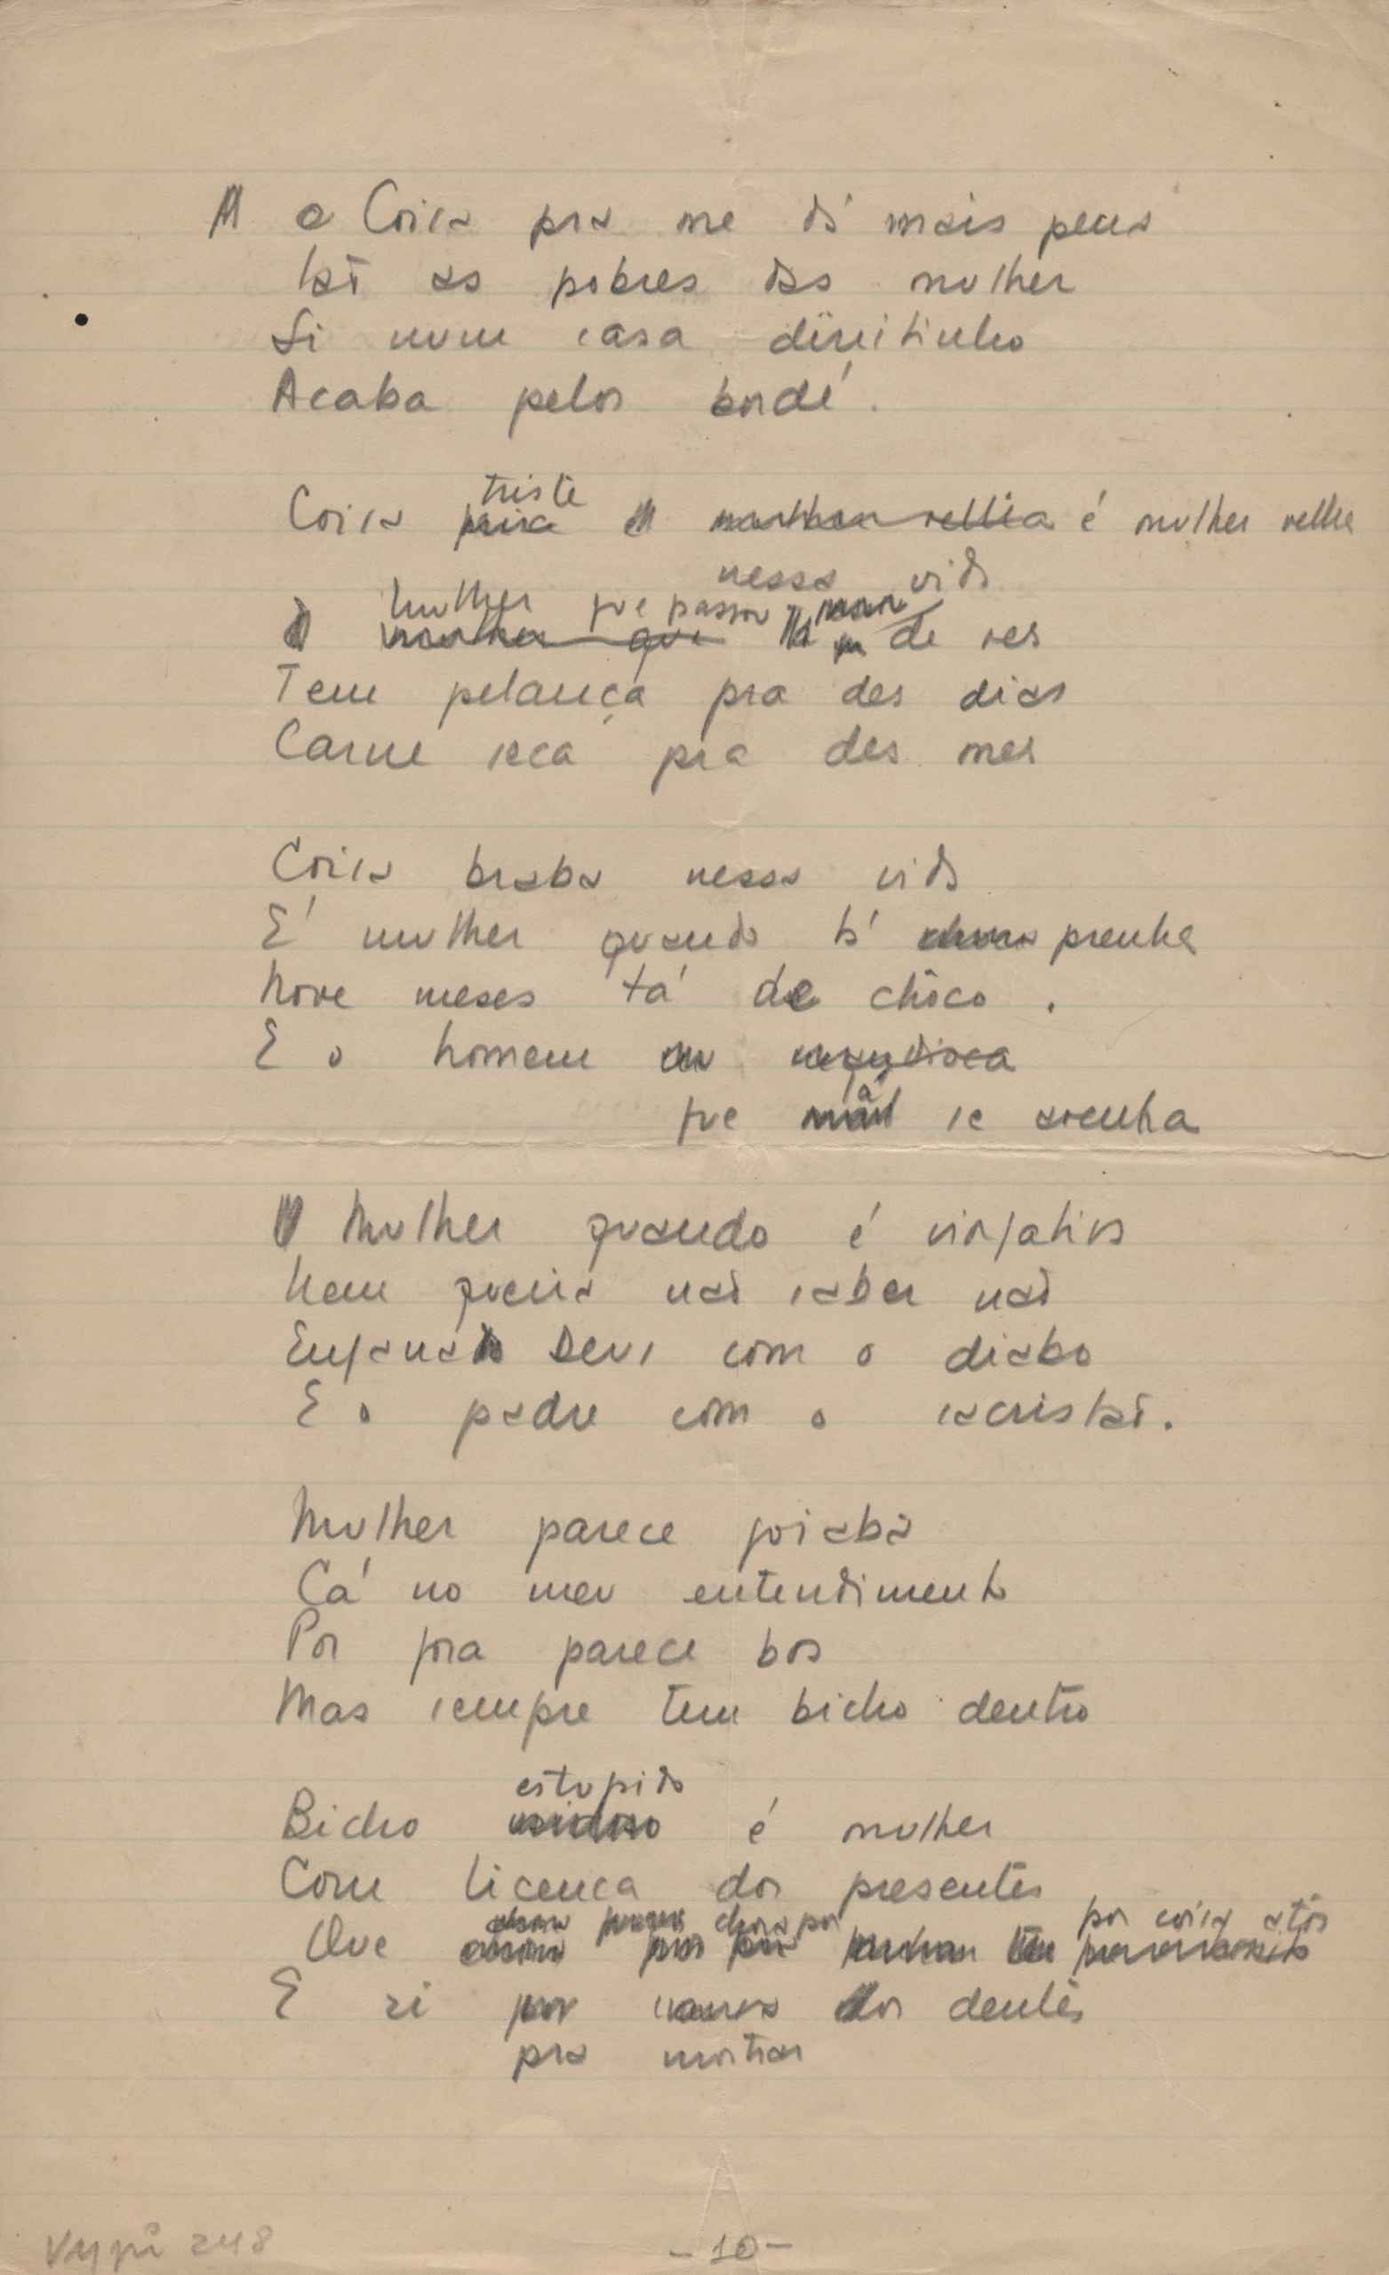 a Coisa pra me dá mais pena
Istã as pobres das mulher
Si num casa direitinho
Acaba pelos bordé.
triste
Coisa é mulher velha
nessa vida
Mulher que passou de res
Tem pelanca pra des dias
Carne seca pra des mes
Coisa braba nessa vida
É mulher quando tá prenha
Nove meses tá de chôco.
E o homem
que lá se avenha
Mulher quando é vingativa
Nem queira não saber não
Engana Deus com o diabo
E o padre com o sacristão.
Mulher parece goiaba
Cá no meu entendimento
Por fora parece boa
Mas sempre tem bicho dentro
estupido
Bicho é mulher
Com licença dos presentes
chora por por coisa atôa
Que
E ri dos dentes
pra mostrar
- 10 -